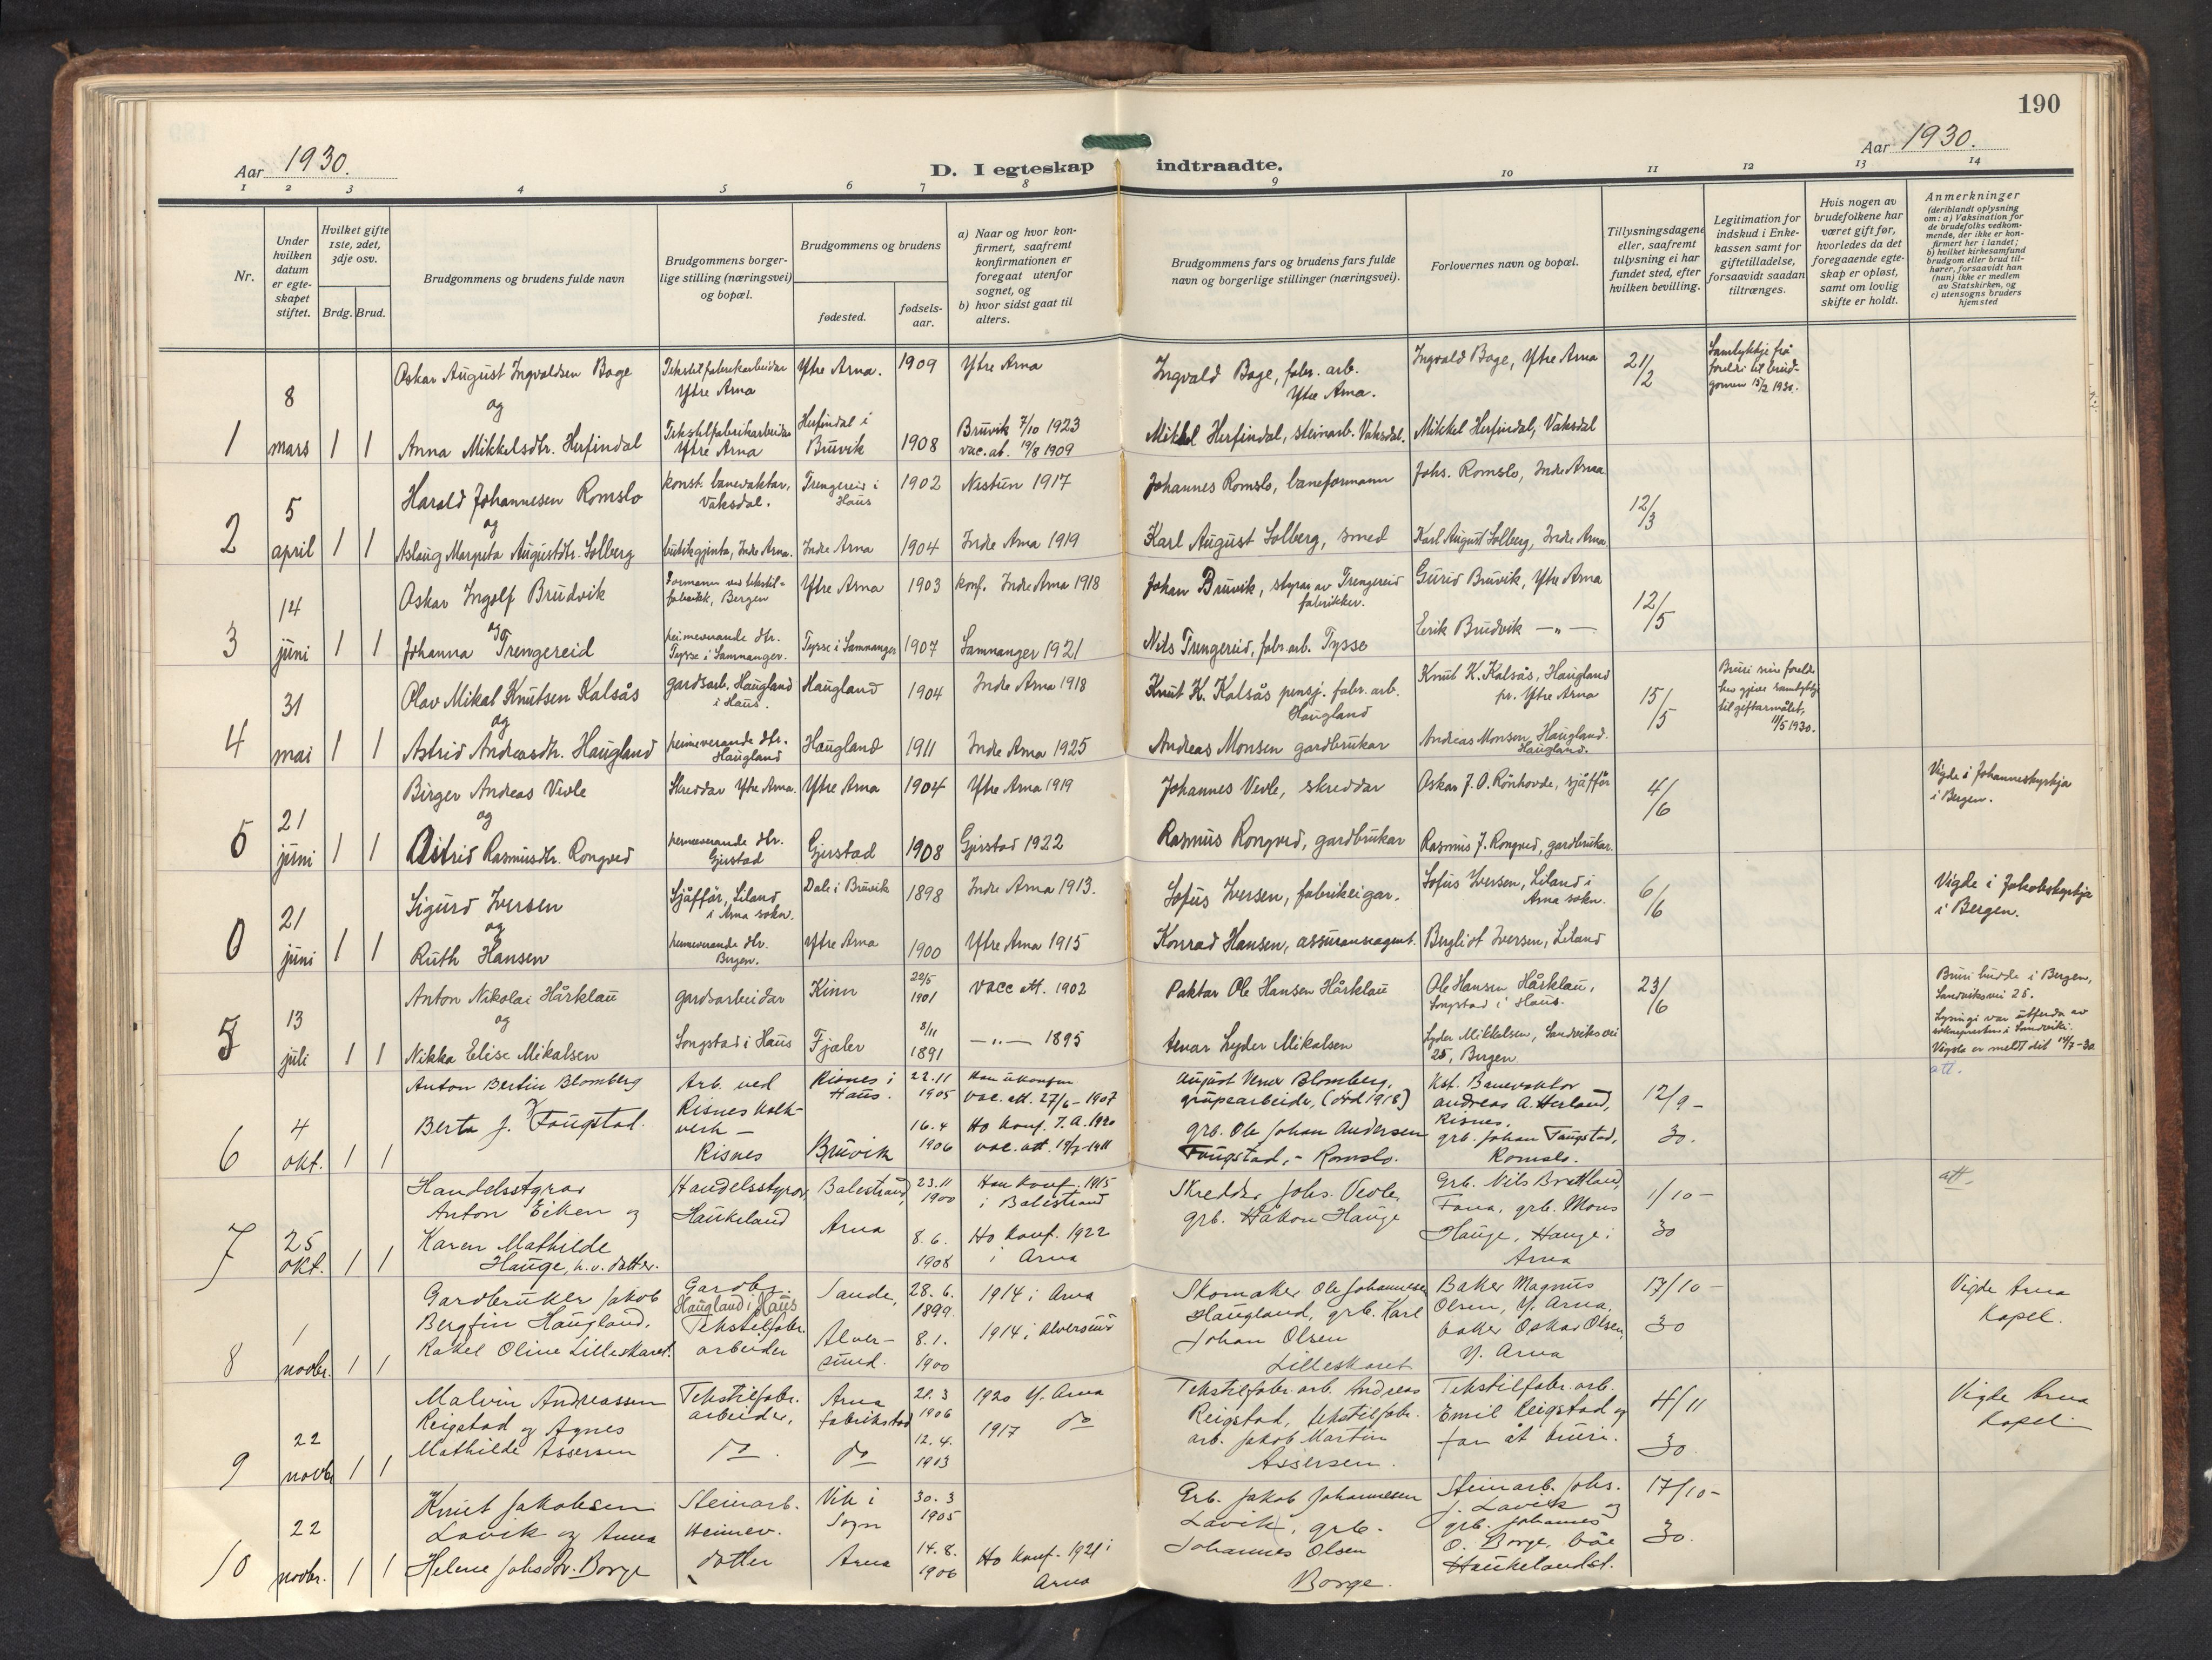 190
Aar 1930.
D. I egteskap indtraadte.
Aar 1930.
1 2 3 4 5 6 7 8 9 10 11 12 13 14
Nr.
Under hvilken datum er egte-skapet stiftet.
Hvilket gifte 1ste, 2det, 3dje osv.
Brdg. Brud.
Brudgommens og brudens fulde navn
Brudgommens borger-lige stilling (næringsvei) og bopæl.
Brudgommens og brudens
fødested.
fødsels-aar.
a) Naar og hvor kon-firmert, saafremt konfirmationen er foregaat utenfor sognet, og
b) hvor sidst gaat til alters.
Brudgommens fars og brudens fars fulde navn og borgerlige stillinger (næringsvei).
Forlovernes navn og bopæl.
Tillysningsdagene eller, saafremt tillysning ei har fundet sted, efter hvilken bevilling.
Legitimation for indskud i Enke-kassen samt for giftetilladelse, forsaavidt saadan tiltrænges.
Hvis nogen av brudefolkene har været gift før, hvorledes da det foregaaende egte-skap er opløst, samt om lovlig skifte er holdt.
Anmerkninger
(deriblandt oplysning om: a) Vaksination for de brudefolks vedkom-mende, der ikke er kon-firmert her i landet; b) hvilket kirkesamfund brudgom eller brud til-hører, forsaavidt han (hun) ikke er medlem av Statskirken, og c) utensogns bruders hjemsted
1 8 mars 1 1
Oskar August Ingvaldsen Boge Tekstilfabrikarbeidar Ytre Arna Ytre Arna. 1909 Ytre Arna Ingvald Boge, fabr. arb. Ytre Arna. Ingvald Boge, Ytre Arna 21/2 Samtykkje frå foreldri til brud-gomen 15/2 1930.
og
Anna Mikkelsdtr. Herfindal Tekstilfabrikarbeidar Ytre Arna Herfindal i Bruvik 1908 Bruvik 7/10 1923 vac. at. 19/8 1909 Mikkel Herfindal, steinarb. Vaksdal. Mikkel Herfindal, Vaksdal
2 5 april 1 1
Harald Johannesen Romslo konst. banevaktar, Vaksdal. Trengereid i Haus 1902 Nestun 1917 Johannes Romslo, baneformann Johs. Romslo, Indre Arna 12/3
og
Aslaug Margreta Augustdtr. Solberg butikgjenta, Indre Arna. Indre Arna 1904 Indre Arna 1919 Karl August Solberg, smed Karl August Solberg, Indre Arna
3 14 juni 1 1
Oskar Ingolf Brudvik Formann ved tekstil-fabrikk, Bergen Ytre Arna 1903 konf. Indre Arna 1918 Johan Bruvik, styrar av Trengereid fabrikker. Gurid Bruvik, Ytre Arna 12/5
og
Johanna Trengereid heimeverande dtr. Tysse i Samnanger. Tysse i Samnanger 1907 Samnanger 1921 Nils Trengereid, fabr. arb. Tysse Erik Brudvik —"—
4 31 mai 1 1
Olav Mikal Knutsen Kalsås gardsarb. Haugland i Haus. Haugland 1904 Indre Arna 1918 Knut K. Kalsås pensj. fabr. arb. Haugland Knut K. Kalsås, Haugland pr. Ytre Arna 15/5 Bruri sine foreldr hev gjeve samtykkje til giftarmålet, 11/5 1930.
og
Astrid Andreasdtr. Haugland heimeverande dtr. Haugland Haugland 1911 Indre Arna 1925 Andreas Monsen gardbrukar Andreas Monsen, Haugland. Haugland.
5 21 juni 1 1
Birger Andreas Vevle Skreddar Ytre Arna. Ytre Arna 1904 Ytre Arna 1919 Johannes Vevle, skreddar Oskar J. O. Rönhovde, sjåffør 4/6 Vigde i Johanneskyrkja i Bergen.
og
Astrid Rasmusdtr. Rongved heimeverande dtr. Gjerstad Gjerstad 1908 Gjerstad 1922 Rasmus Rongved, gardbrukar Rasmus J. Rongved, gardbrukar.
0 21 juni 1 1
Sigurd Iversen Sjåffør, Liland i Arna sokn. Dale i Bruvik 1898 Indre Arna 1913. Sofus Iversen, fabrikeigar. Sofus Iversen, Liland i Arna sokn. 6/6 Vigde i Jakobskyrkja i Bergen.
og
Ruth Hansen heimeverande dtr. Bergen. Ytre Arna 1900 Ytre Arna 1915 Konrad Hansen, assuranseagent. Bergliot Iversen, Liland
5 13 juli 1 1
Anton Nikolai Hårklau gardsarbeidar Kinn 22/5 1901 vacc att. 1902 Paktar Ole Hansen Hårklau Ole Hansen Hårklau, Songstad i Haus. 23/6 Bruri budde i Bergen, Sandviksvei 25. Lysingi var utferda av sokneprestens i Sandviki. Vigsla er meldt dit 14/7-30
og
Nikka Elise Mikalsen Songstad i Haus Fjaler 8/11 1891 —"— 1895 Lyder Mikalsen Lyder Mikkelsen, Sandviksvei 25, Bergen att.
6 4 okt. 1 1
Anton Bertin Blomberg Arb. ved Risnes kalk-verk – Risnes Risnes i Haus. 22.11 1905 Han ukonfm. vac. att. 27/6–1907 August Blomberg, grupearbeide, (död 1918) Kst. Banevaktor Andreas A. Herland, Risnes. 12/9– 30.
Berta J. Fougstad. Bruvik 16.4 1906 Ho konf. I. A. 1920 vac. att. grb. Ole Johan Andersen Fougstad, – Romslo. grb. Johan Faugstad, Romslo.
7 25 okt. 1 1
Handelsstyrar Anton Eiken og Handelsstyrar, Haukeland Balestrand, 23.11 1900 Han konf. 1915 i Balestrand Skredder Johs. Vevle, Grb. Nils Brattland, Fana, grb. Mons 1/10– 30 att.
Karen Mathilde Hauge, h.v. datter. Arna 8.6. 1908 Ho konf. 1922 i Arna grb. Håkon Hauge Hauge, Hauge i Arna
8 1 novbr. 1 1
Gardbruker Jakob Bergfin Haugland. Gardbr. Haugland i Haus Sande, 28.6. 1899. 1914 i Arna Skomaker Ole Johannesen Haugland, grb. Karl Baker Magnus Olsen, Y. Arna, 17/10– 30 Vigde Arna Kapel.
Rakel Oline Lilleskaret. Tekstilfabr. arbeider Alver-sund. 8.1. 1900 1914 i Alversund Johan Olsen Lilleskaret baker Oskar Olsen, Y. Arna
9 22 novb. 1 1
Malvin Andreassen Reigstad og Agnes Tekstilfabr. arbeider, Arna fabrikstad 21.3 1906 1920 Y. Arna Tekstilfabr. arb. Andreas Reigstad, tekstilfabr. Tekstilfabr. arb. Emil Reigstad og 4/11 30 Vigde Arna Kapel
Mathilde Assersen do do 12.4. 1913 1917 do arb. Jakob Martin Assersen. far åt bruri.
10 22 novbr. 1 1
Knut Jakobsen Lavik og Anna Steinarb. Vik i Sogn 30.3 1905 Grb. Jakob Johannesen Lavik, grb. Steinarb. Johs. J. Lavik og 17/10– 30.
Helene Johsdtr. Borge Heimev. dotter Arna 14.8. 1906 Ho konf. 1921 i Arna Johannes Olsen Borge. grb. Johannes O. Borge, båe Haukelandst.